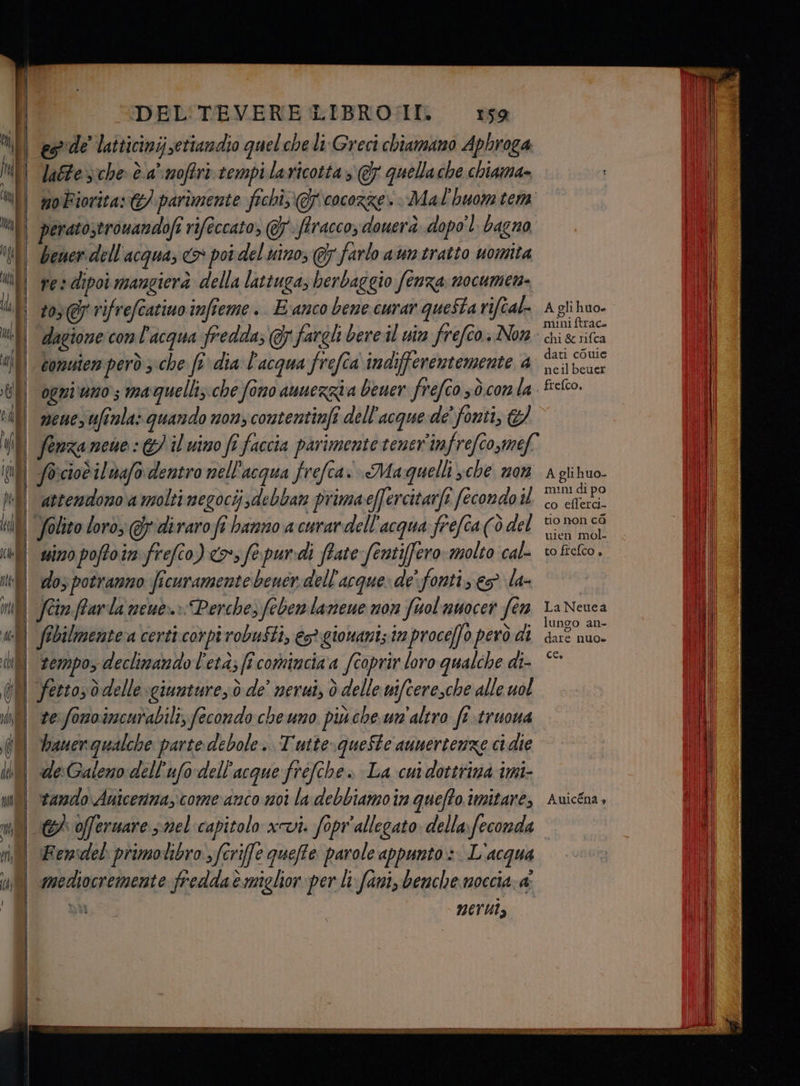 DEL TEVERE LIBRO II. 159
& de' latticinij, etiandio quel che li Greci chiamano Aphroga
latte, che è a' nostri tempi la ricotta, & quella che chiama-
no Fiorita: & parimente fichi, & cocozze. Ma l'huom tem
perato, trouandosi riseccato, & stracco, douerà dopo'l bagno
beuer dell'acqua, & poi del uino, & farlo a un tratto uomita
re: dipoi mangierà della lattuga, herbaggio senza nocumen-
to, & rifrescatiuo insieme. E anco bene curar questa riscal-
dagione con l'acqua fredda, & fargli bere il uin fresco. Non
conuien però, che si dia l'acqua fresca indifferentemente a
ogni uno; ma quelli, che sono auuezzi a beuer fresco, ò con la
neue, usinla: quando non, contentinsi dell'acque de' fonti, &
senza neue: & il uino si faccia parimente tener' in fresco, mes
so cioè il uaso dentro nell'acqua fresca. Ma quelli, che non
attendono a molti negocij, debban prima essercitarsi secondo il
solito loro, & di raro si hanno a curar dell'acqua fresca (ò del
uino posto in fresco) &, se pur di state sentissero molto cal-
do, potranno sicuramente beuer dell'acque de' fonti, & la-
scin star la neue. Perche, se ben la neue non suol nuocer sen
sibilmente a certi corpi robusti, & giouani; in processo però di
tempo, declinando l'età, si comincia a scoprir loro qualche di-
fetto, ò delle giunture, ò de' nerui, ò delle uiscere, che alle uol
te sono incurabili, secondo che uno più che un'altro si truoua
hauer qualche parte debole. Tutte queste auuertenze ci die
de Galeno dell'uso dell'acque fresche. La cui dottrina imi-
tando Auicenna, come anco noi la debbiamo in questo imitare,
& osseruare, nel capitolo xvi. sopr'allegato della seconda
Fen del primo libro, scrisse queste parole appunto: L'acqua
mediocremente fredda è miglior per li sani, benche noccia a'
nerui,
A gli huo-
mini strac-
chi & risca
dati cõuie
ne il beuer
fresco.
A gli huo-
mini di po
co esserci-
tio non cõ
uien mol-
to fresco.
La Neue a
lungo an-
dare nuo-
ce.
Auicẽna.